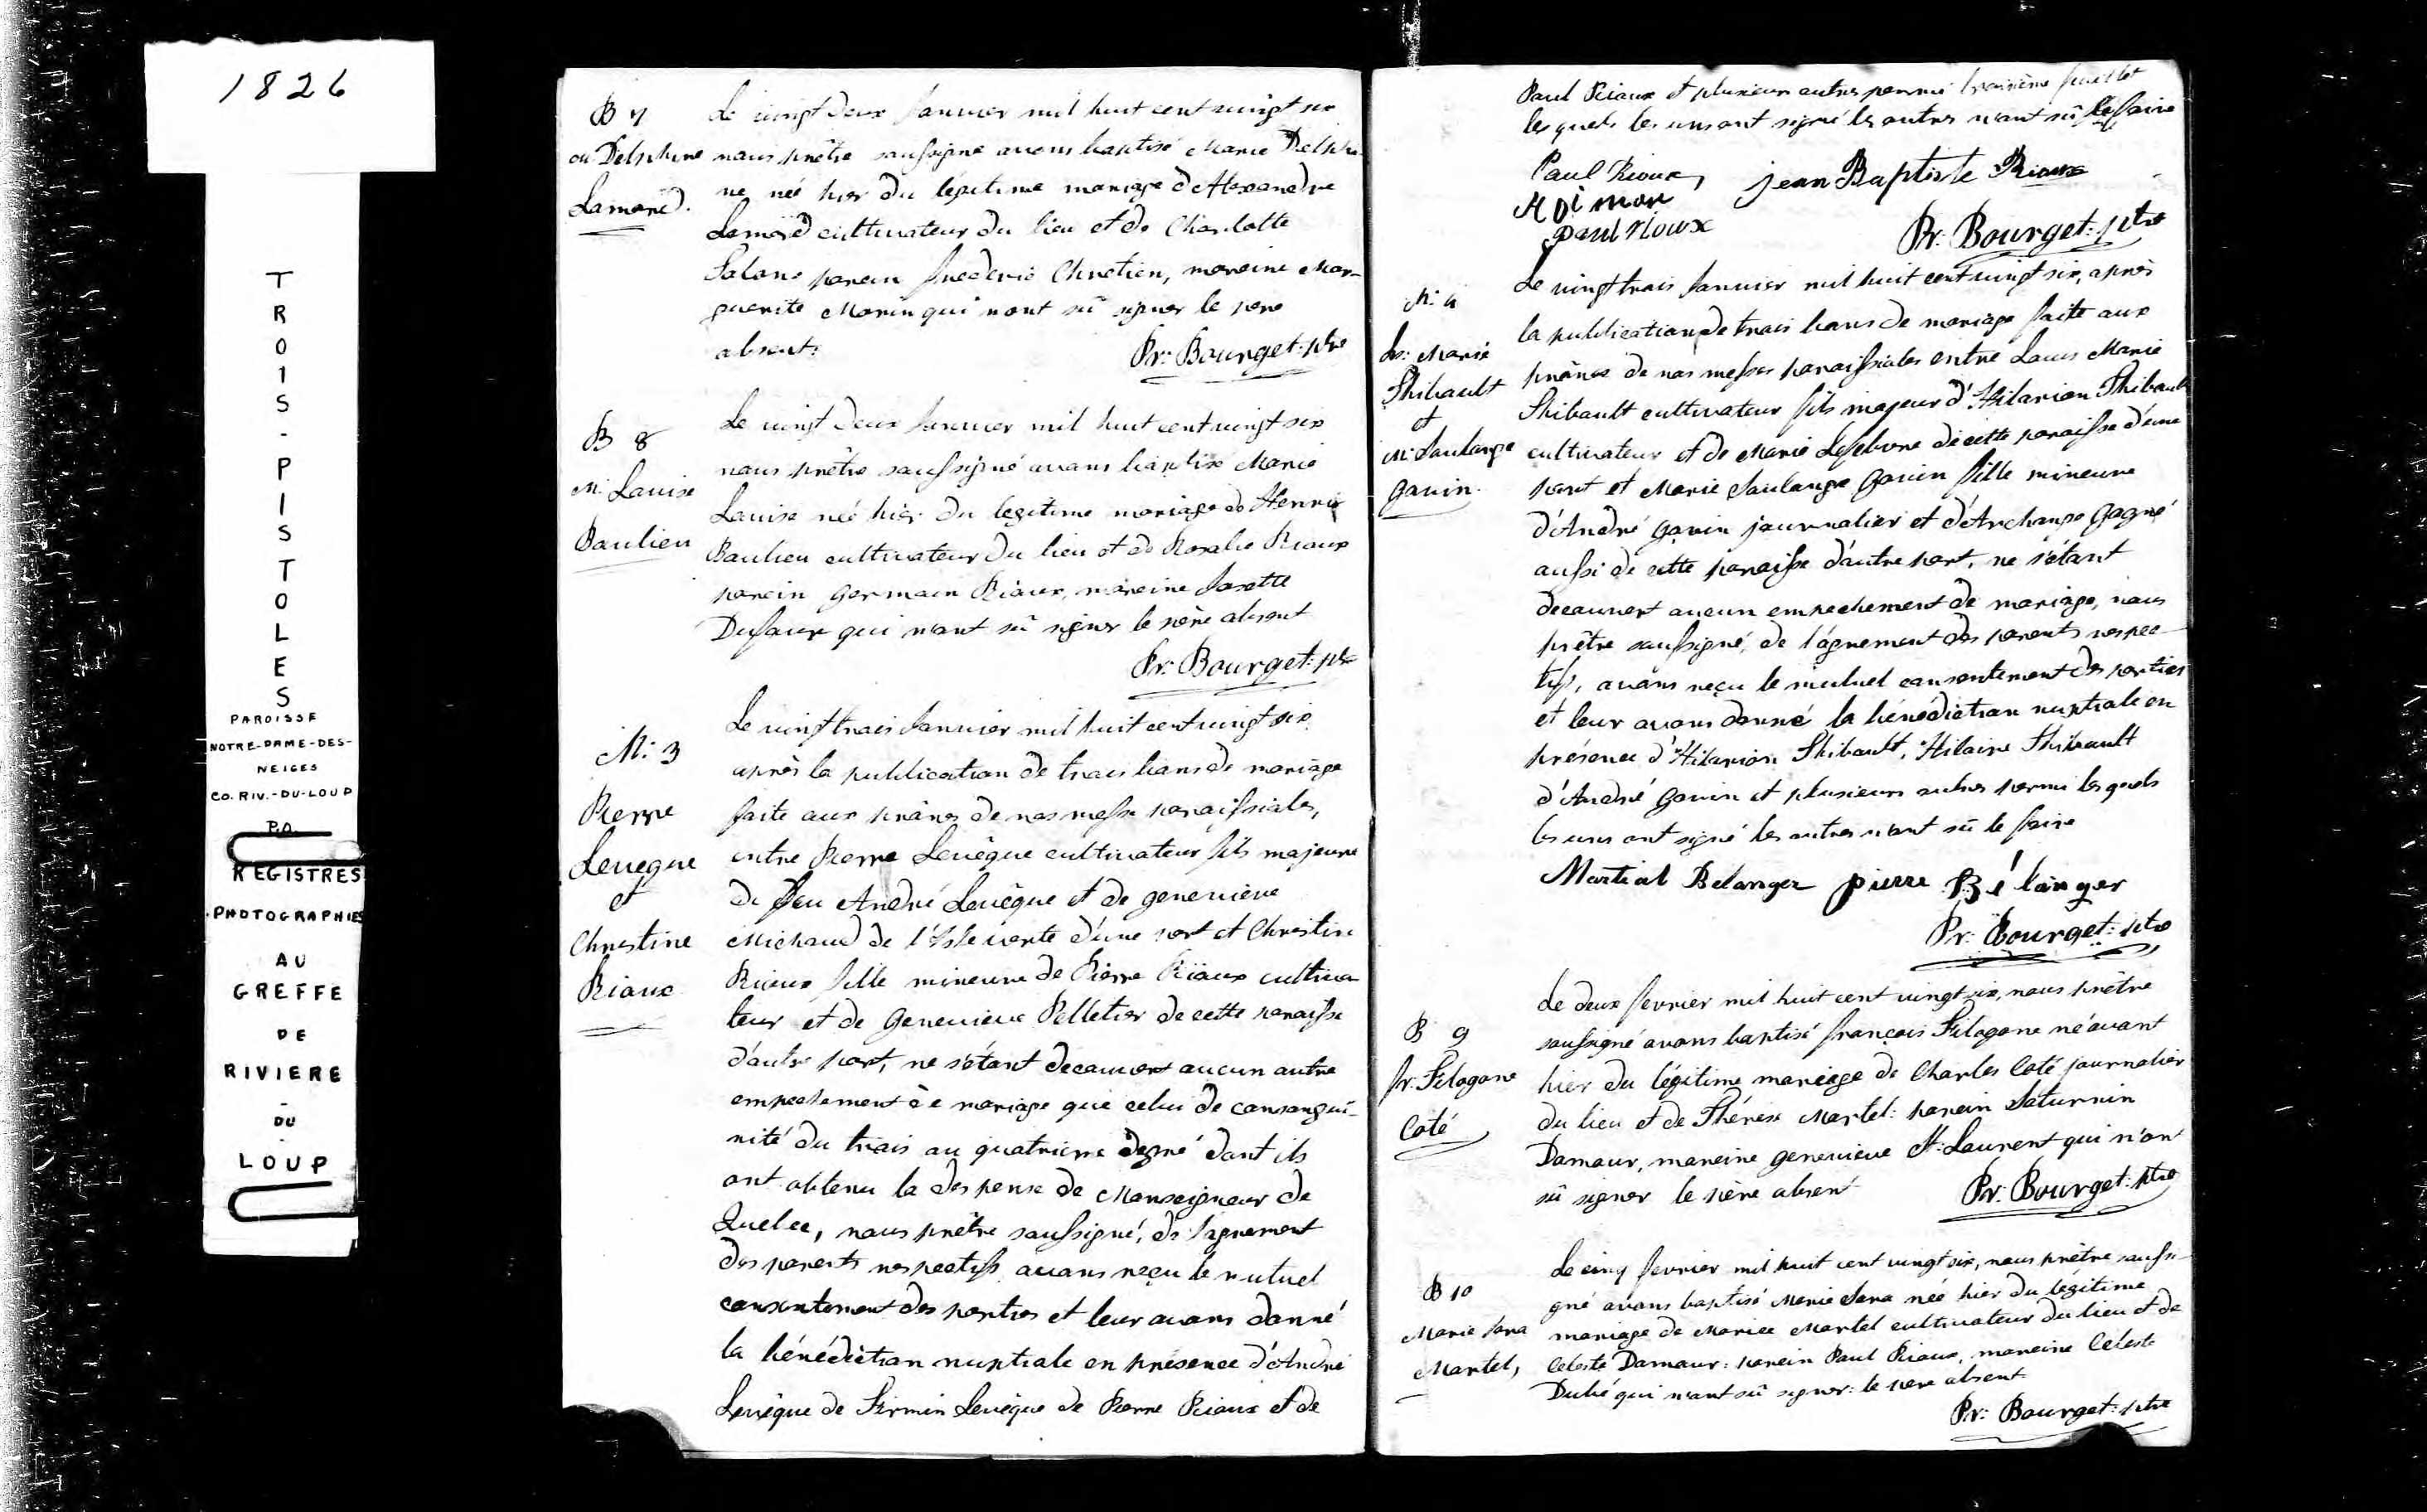 1826
T
R
O
I
S
-
P
I
S
T
O
L
E
S
PAROISSE
NOTRE-DAME-DES-
NEIGES
CO. RIV.-DU-LOUP
P.Q.
REGISTRES
PHOTOGRAPHIES
AU
GREFFE
DE
RIVIERE
-
DU
-
LOUP
B 7
ou Delphine
Lamard.
Le vingt deux Janvier mil huit cent vingt six
nous prêtre soussigné avons baptisé Marie Delphi-
ne née hier du légitime mariage d'Alexandre
cultivateur du lieu et de Charlotte
parein frederic Chretien, mareine Mar-
guerite Morin qui n'ont sû signer le pere
absent:
Pr: Bourget: ptre
B 8
M: Louise
Baulieu
Le vingt deux Janvier mil huit cent vingt six
nous prêtre soussigné avons baptisé Marie
Louise née hier du legitime mariage de Henrie
Baulieu cultivateur du lieu et de Rosalie Rioux
parein Germain Rioux, mareine Josette
Dufour qui n'ont sû signer le père absent
Pr: Bourget: ptre
M: 3
Pierre
Leveque
et
Christine
Rioux
Le vingt trois Janvier mil huit cent vingt six
après la publication de trois bans de mariage
faite aux prônes de nos messe paroissiales,
entre Pierre Levêque cultivateur fils majeure
de feu André Levêque et de genevieve
Michaud de l'Isle verte d'une part et Christine
Rioux fille mineure de Pierre Rioux cultiva
teur et de Genevieve Pelletier de cette paroisse
d'autre part, ne s'étant decouvert aucun autre
empechement de mariage que celui de consangui-
nité du trois au quatrieme degré dont ils
ont obtenu la dispense de Monseigneur de
Quebec, nous prêtre soussigné, de l'agrement
des parents respectifs avons reçu le mutuel
consentement des parties et leur avons donné
la bénédiction nuptiale en présence d'André
Levêque de Firmin Levêque de Pierre Rioux et de
Paul Rioux et plusieurs autres parmi troisième feuillet
les quels les uns ont signé les autres n'ont sû le faire
Paul Rioux, Jean Baptiste Rioux
paul rioux
Pr: Bourget: ptre
M: 4
Ls: Marie
Thibault
et
M: Soulange
Gauin.
Le vingt trois Janvier mil huit cent vingt six, après
la publication de trois bans de mariage faite aux
prônes de nos messes paroissiales entre Louis Marie
Thibault cultivateur fils majeur d'Hilarion Thibault
cultivateur et de Marie Lefebvre de cette paroisse d'une
part et Marie Soulange Gauin fille mineure
d'André Gauin journalier et d'Archange Gagné
aussi de cette paroisse d'autre part, ne s'étant
decouvert aucun empechement de mariage, nous
prêtre soussigné, de l'agrement des parents respec-
tifs, avons reçu le mutuel consentement des parties
et leur avons donné la bénédiction nuptiale en
présence d'Hilarion Thibault, Hilaire Thibault
d'André Gauin et plusieurs autres parmi les quels
les uns ont signé les autres n'ont sû le faire
Martial Belanger pierre Bélanger
Pr: Bourget: ptre
B 9
fr: Filogone
Coté
Le deux fevrier mil huit cent vingt six, nous prêtre
soussigné avons baptisé françois Filogone né avant
hier du légitime mariage de Charles Coté journalier
du lieu et de Thérèse Martel: parein Saturnin
Damour, mareine genevieve St: Laurent qui n'ont
sû signer le père absent
Pr: Bourget: ptre
B 10
Marie Sara
Martel,
Le cinq fevrier mil huit cent vingt six, nous prêtre soussi-
gné avons baptisé Marie Sara née hier du légitime
mariage de Martel cultivateur du lieu et de
Celeste Damour: parein Paul Rioux, mareine Celeste
Dubé qui n'ont sû signer: le pere absent
Pr: Bourget: ptre